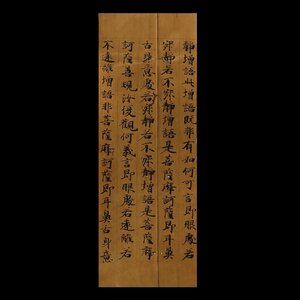 靜增語此增語既非有如何可言即眼處若
寂靜若不寂靜增語是菩薩摩訶薩即耳鼻
舌身意處若寂靜若不寂靜增語是菩薩摩
訶薩善現汝復觀何義言即眼處若遠離若
不遠離增語非菩薩摩訶薩即耳鼻舌身意